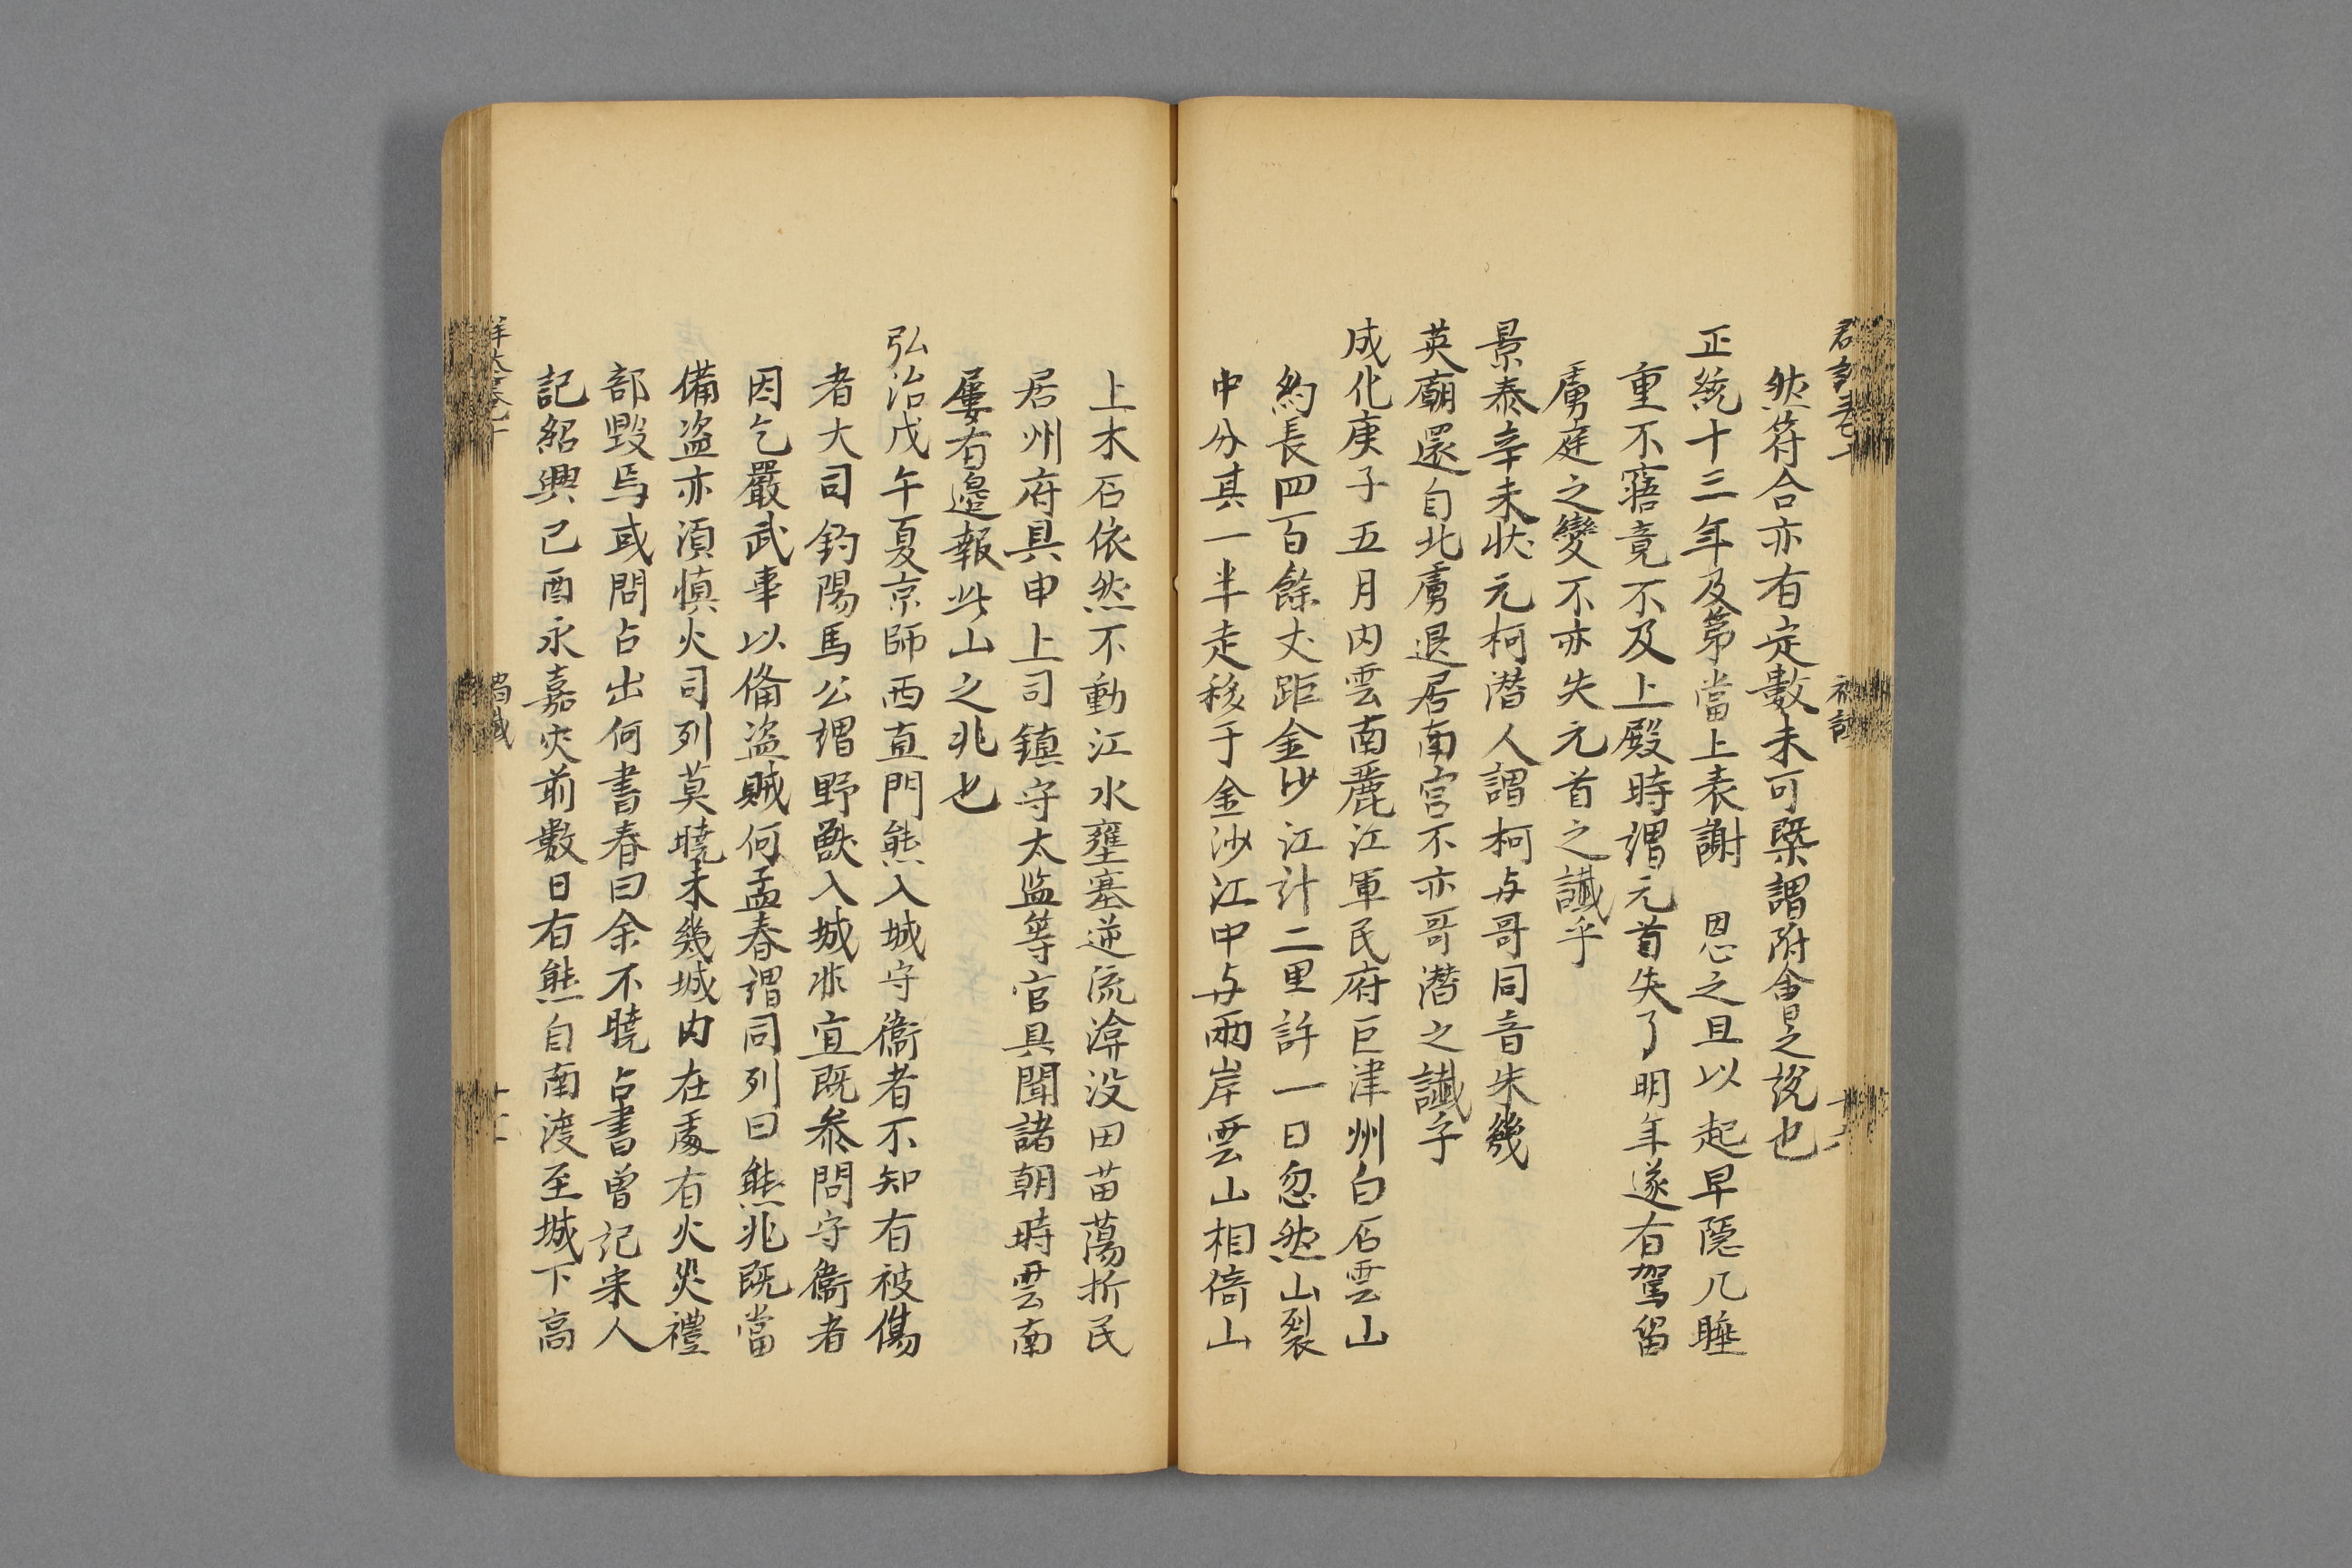 然符合亦有定數未可槩謂附會之說也
正統十三年及第當上表謝 恩之且以起早隱几睡
重不寤竟不及上殿時謂元首失了明年遂有駕留
虜庭之變不亦失元首之讖乎
景泰辛未狀元柯潜人謂柯与哥同音朱幾
英廟還自北虜退居南宮不亦哥潜之讖乎
成化庚子五月內雲南麗江軍民府巨津州白石雲山
約長四百餘丈距金沙江計二里許一日忽然山裂
中分其一半走移于金沙江中与兩岸雲山相倚山
上木石依然不動江水壅塞逆流渰没田苗蕩折民
居州府具申上司鎮守太監等官具聞諸朝時雲南
屢有邊報此山之兆也
弘治戊午夏京師西直門熊入城守衞者不知有被傷
者大司鈞陽馬公謂野獸入城非宜既叅問守衞者
因乞嚴武事以俻盗賊何孟春謂同列曰熊兆既當
備盗亦湏慎火司列莫曉未幾城內在處有火災禮
部毀焉或問占出何書春曰余不曉占書曾記宋人
記紹興己酉永嘉災前數日有熊自南渡至城下高